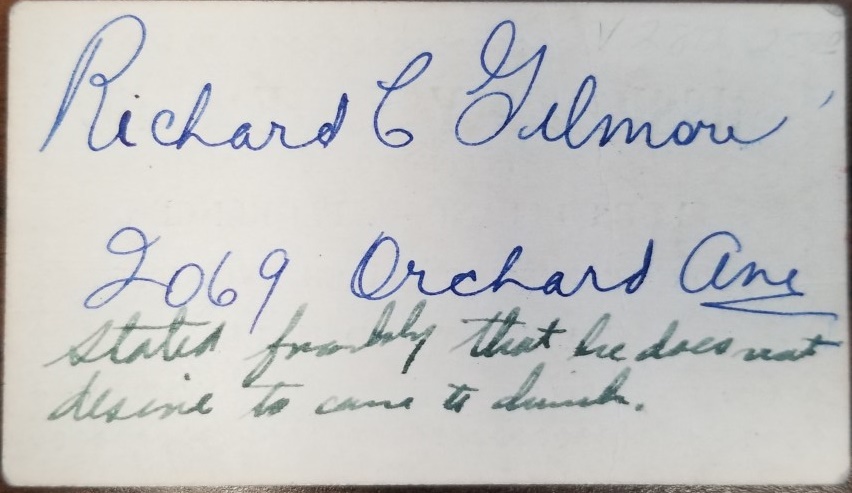 Richard C Gilmore
2069 Orchard Ave
Stated frankly that he does not
desire to come to church.